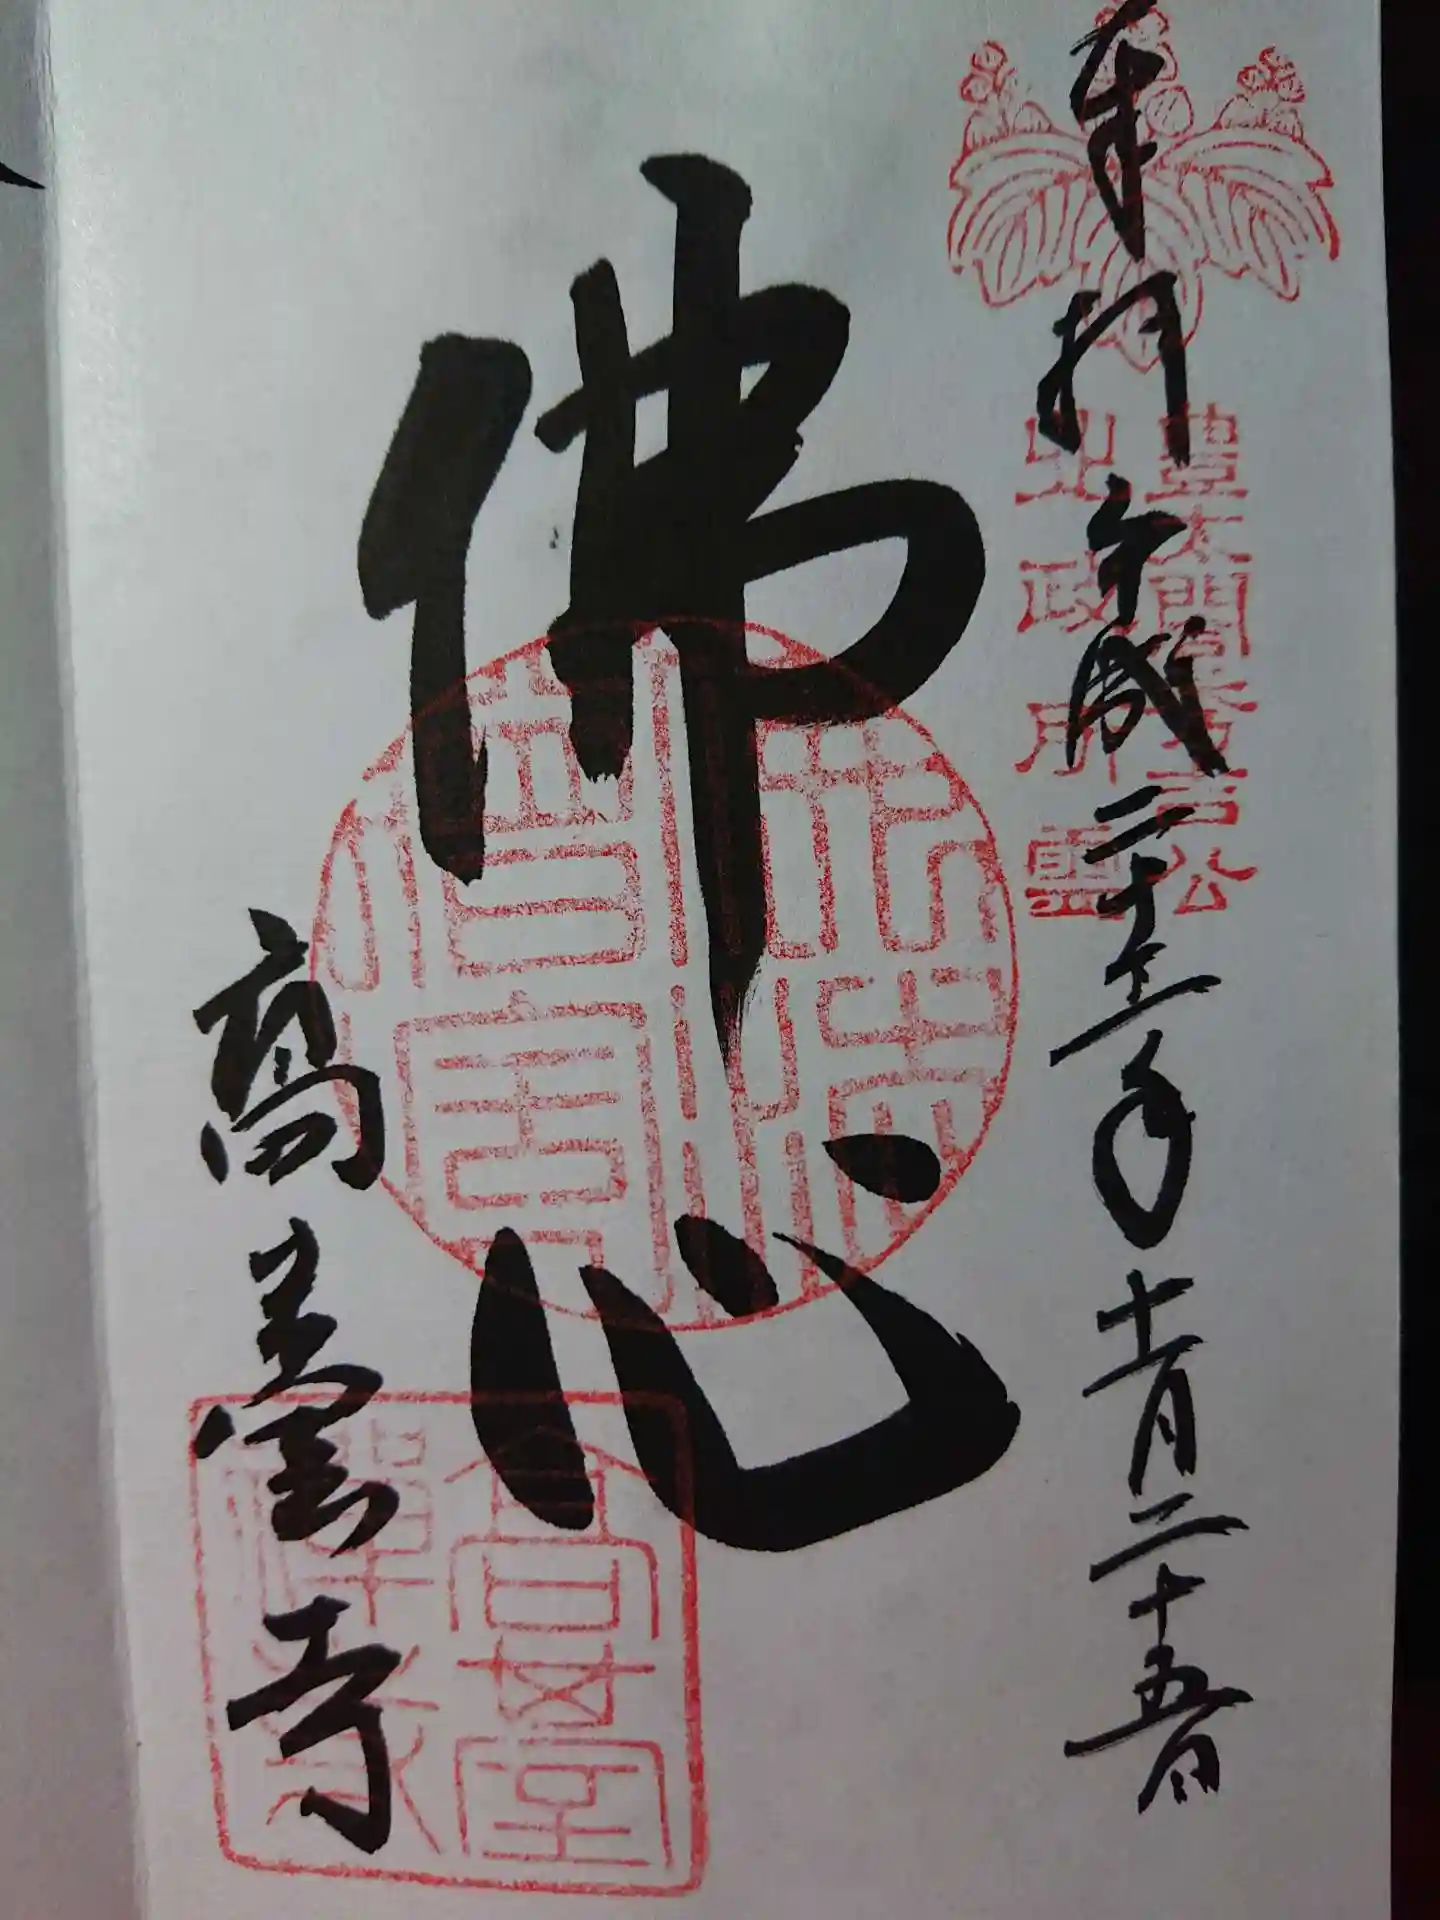 奉拝 平成二十三年十一月二十五日
豊太閤秀吉公
北政所霊
佛心
高臺寺